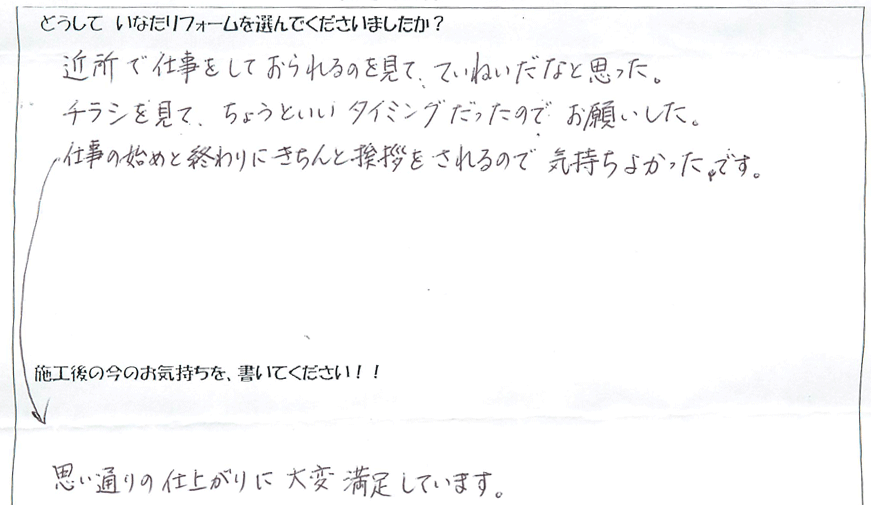 どうして いなたリフォームを選んでくださいましたか？
近所で仕事をしておられるのを見て、ていねいだなと思った。
チラシを見て、ちょうといいタイミングだったのでお願いした。
仕事の始めと終わりにきちんと挨拶をされるので気持ちよかった。です。
施工後の今のお気持ちを、書いてください！！
思い通りの仕上がりに大変満足しています。